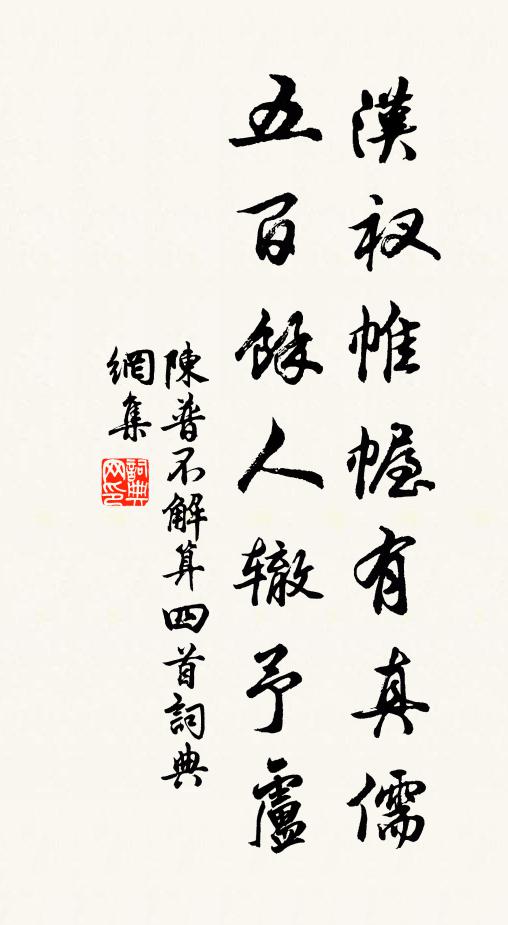 漢衩帷幄有真儒
五百餘人辙予盧
陳普不解算四首詞典
網集
詞典
网印